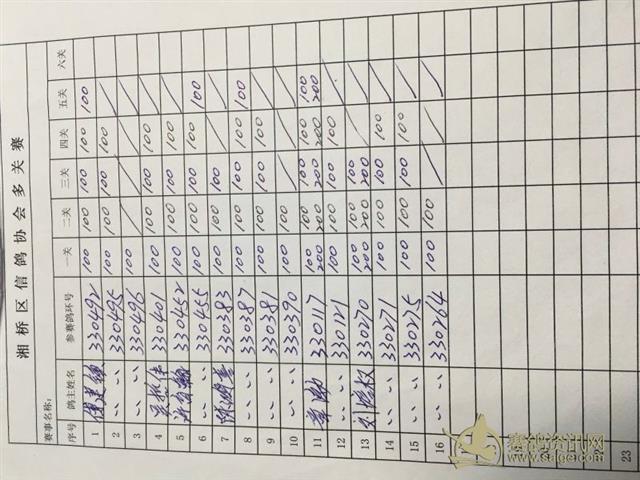 湘桥区信鸽协会多关赛
赛事名称：
序号 鸽主姓名 参赛鸽环号 一关 二关 三关 四关 五关 六关
1 330492 100 100 100 100 100
2 〃 330495 100 100 100 100 /
3 〃 330496 100 / / / /
4 330401 100 100 100 100 /
5 330452 100 100 100 100 /
6 〃 330455 100 100 100 100 100
7 330383 100 100 100 / /
8 〃 330387 100 100 100 100 100
9 〃 330381 100 100 100 100 /
10 〃 330390 100 100 / / /
11 330117 100 200 100 200 100 200 100 200 100 200
12 〃 330121 100 100 100 100 /
13 330270 100 200 100 200 100 200 / /
14 〃 330271 100 100 100 100 /
15 〃 330275 100 100 100 100 /
16 〃 330264 100 100 / / /
23
赛鸽资讯网
www.saige.com